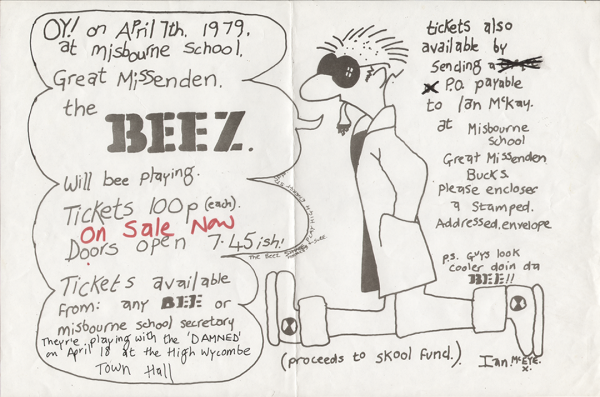 OY! on April 7th, 1979,
at misbourne school,
Great Missenden.
the
BEEZ.
Will bee playing.
Tickets 100p (each).
On Sale Now
Doors open 7.45ish!
Tickets available
From: any BEE or
misbourne school secretary
They're playing with the 'DAMNED'
on April 18 at the High Wycombe
Town Hall
The Beez
tickets also
available by
sending a
P.O. payable
to Ian McKay.
at Misbourne
School
Great Missenden
Bucks.
Please encloser
a Stamped.
Addressed, envelope
ps. Guys look
cooler doin da
BEE!!
(proceeds to skool fund.).
Ian. McEYE.
x.